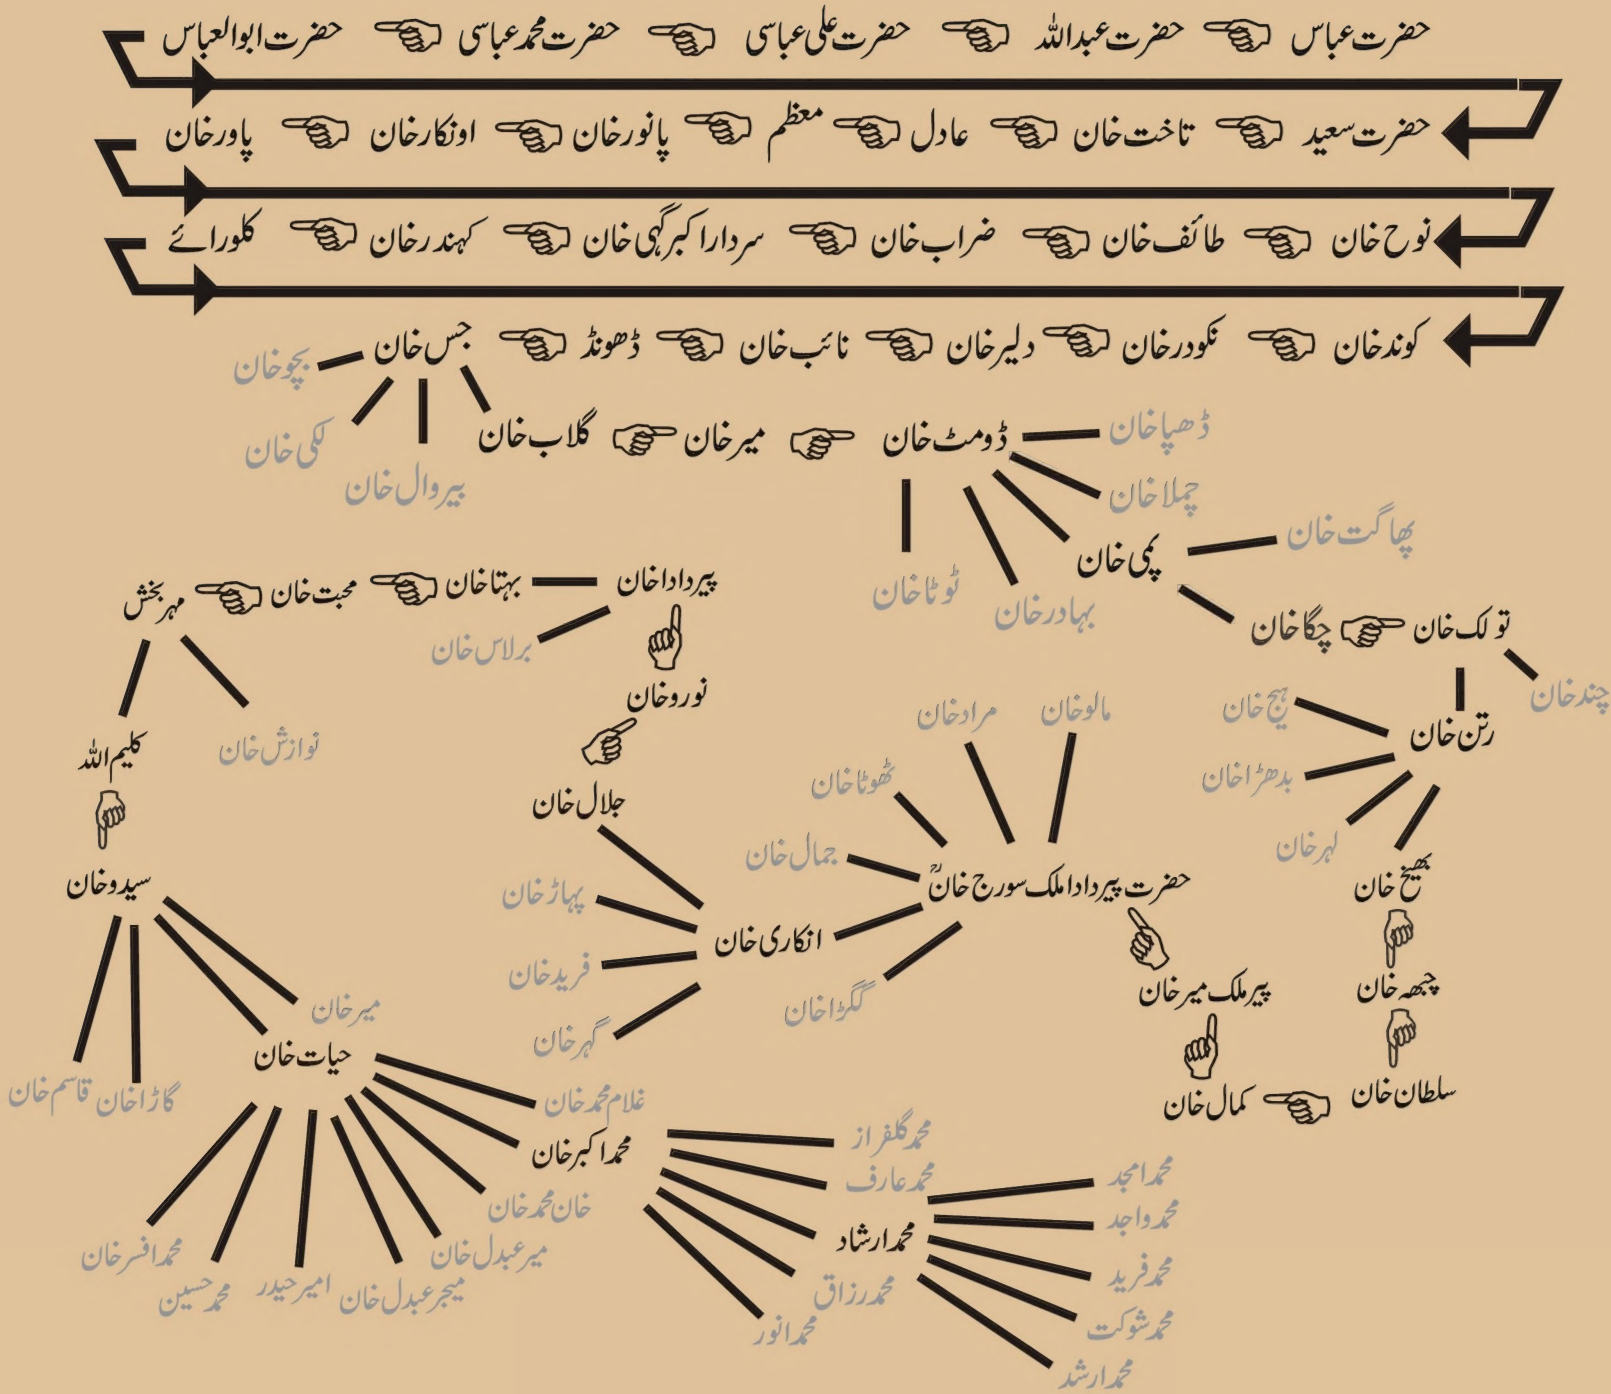 حضرت عباس حضرت عبداللہ حضرت علی عباسی حضرت محمد عباسی حضرت ابوالعباس
حضرت سعید تاخت خان عادل معظم پانور خان اونکار خان پاور خان
نوح خان طائف خان ضراب خان سردار اکبر گہی خان کہندر خان کلورائے
کوند خان نکودر خان دلیر خان نائب خان ڈھونڈ جس خان
بچو خان
لکی خان
بیروال خان
گلاب خان میر خان ڈومٹ خان
ڈھپا خان
چملا خان
پمی خان
بہادر خان
ٹوٹا خان
پھاگت خان
چگا خان تولک خان
چند خان
رتن خان
ہیج خان
بدھڑا خان
لہر خان
بھیخ خان
چبھہ خان
سلطان خان
کمال خان
پیر ملک میر خان
حضرت پیر دادا ملک سورج خانؒ
مالو خان
مراد خان
ٹھوٹا خان
جمال خان
انکاری خان
گگڑا خان
جلال خان
پہاڑ خان
فرید خان
گہر خان
نورو خان
پیر دادا خان
بہتا خان
برلاس خان
محبت خان
مہر بخش
نوازش خان
کلیم اللہ
سیدو خان
میر خان
حیات خان
گاڑا خان
قاسم خان
غلام محمد خان
محمد اکبر خان
خان محمد خان
میر عبدل خان
میجر عبدل خان
امیر حیدر
محمد حسین
محمد افسر خان
محمد گلفراز
محمد عارف
محمد ارشاد
محمد رزاق
محمد انور
محمد امجد
محمد واجد
محمد فرید
محمد شوکت
محمد ارشد